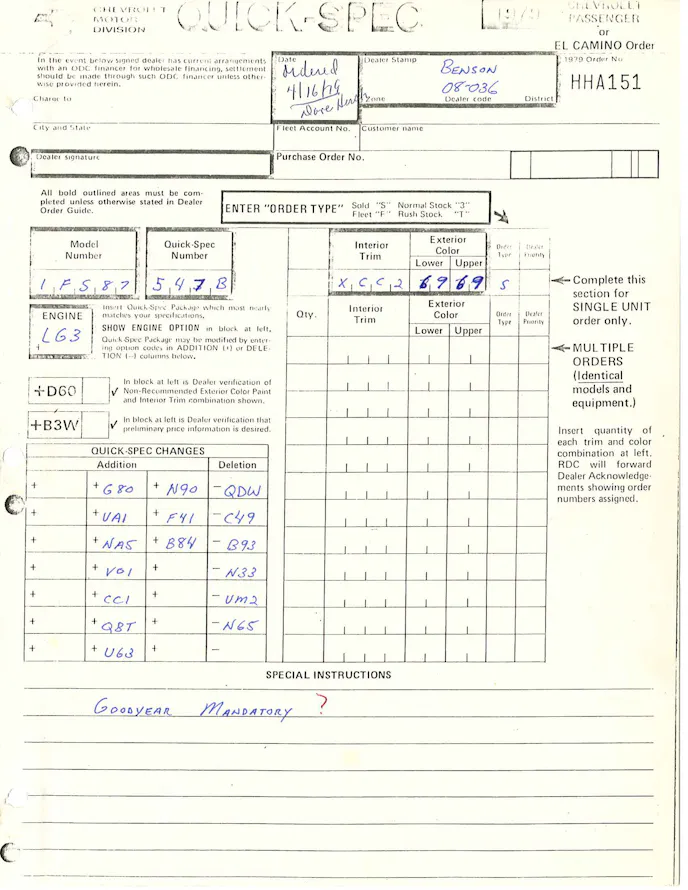 CHEVROLET
MOTOR
DIVISION
QUICK-SPEC
1979
CHEVROLET
PASSENGER
or
EL CAMINO Order
In the event below signed dealer has current arrangements
with an ODC financer for wholesale financing, settlement
should be made through such ODC financer unless other-
wise provided herein.
Charge to
Date
ordered
4/16/79
Dave
Dealer Stamp
BENSON
08-036
Zone Dealer code District
1979 Order No
HHA151
City and State
Fleet Account No.
Customer name
Dealer signature
Purchase Order No.
All bold outlined areas must be com-
pleted unless otherwise stated in Dealer
Order Guide.
ENTER "ORDER TYPE" Sold "S" Normal Stock "3"
Fleet "F" Rush Stock "T"
Model
Number
Quick-Spec
Number
Interior
Trim
Exterior
Color
Lower Upper
Order
Type
Dealer
Priority
1FS87
547B
XCC2
69 69
S
Complete this
section for
SINGLE UNIT
order only.
ENGINE
LG3
Insert Quick-Spec Package which most nearly
matches your specifications.
SHOW ENGINE OPTION in block at left.
Quick-Spec Package may be modified by enter-
ing option codes in ADDITION (+) or DELE-
TION (-) columns below.
Qty.
Interior
Trim
Exterior
Color
Lower Upper
Order
Type
Dealer
Priority
MULTIPLE
ORDERS
(Identical
models and
equipment.)
+D60 ✓ In block at left is Dealer verification of
Non-Recommended Exterior Color Paint
and Interior Trim combination shown.
+B3W ✓ In block at left is Dealer verification that
preliminary price information is desired.
Insert quantity of
each trim and color
combination at left.
RDC will forward
Dealer Acknowledge-
ments showing order
numbers assigned.
QUICK-SPEC CHANGES
Addition Deletion
+ +G80 +N90 -QDW
+ +UA1 +F41 -C49
+ +NA5 +B84 -B93
+ +V01 + -N33
+ +CC1 + -UM2
+ +Q8T + -N65
+ +U63 + -
SPECIAL INSTRUCTIONS
GOODYEAR MANDATORY ?